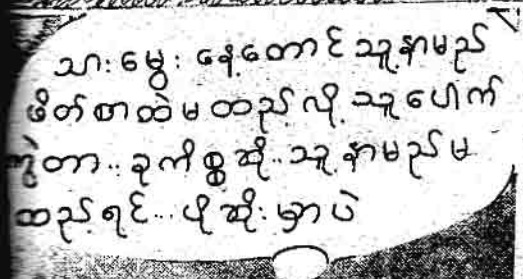 သားမွေး နေ့တောင် သူ့နာမည်
ဖိတ်စာထဲမထည့်လို့ သူပေါက်
ကွဲတာ.. ခုကိစ္စဆို.. သူ့နာမည်မ
ထည့်ရင်... ပိုဆိုးမှာပဲ